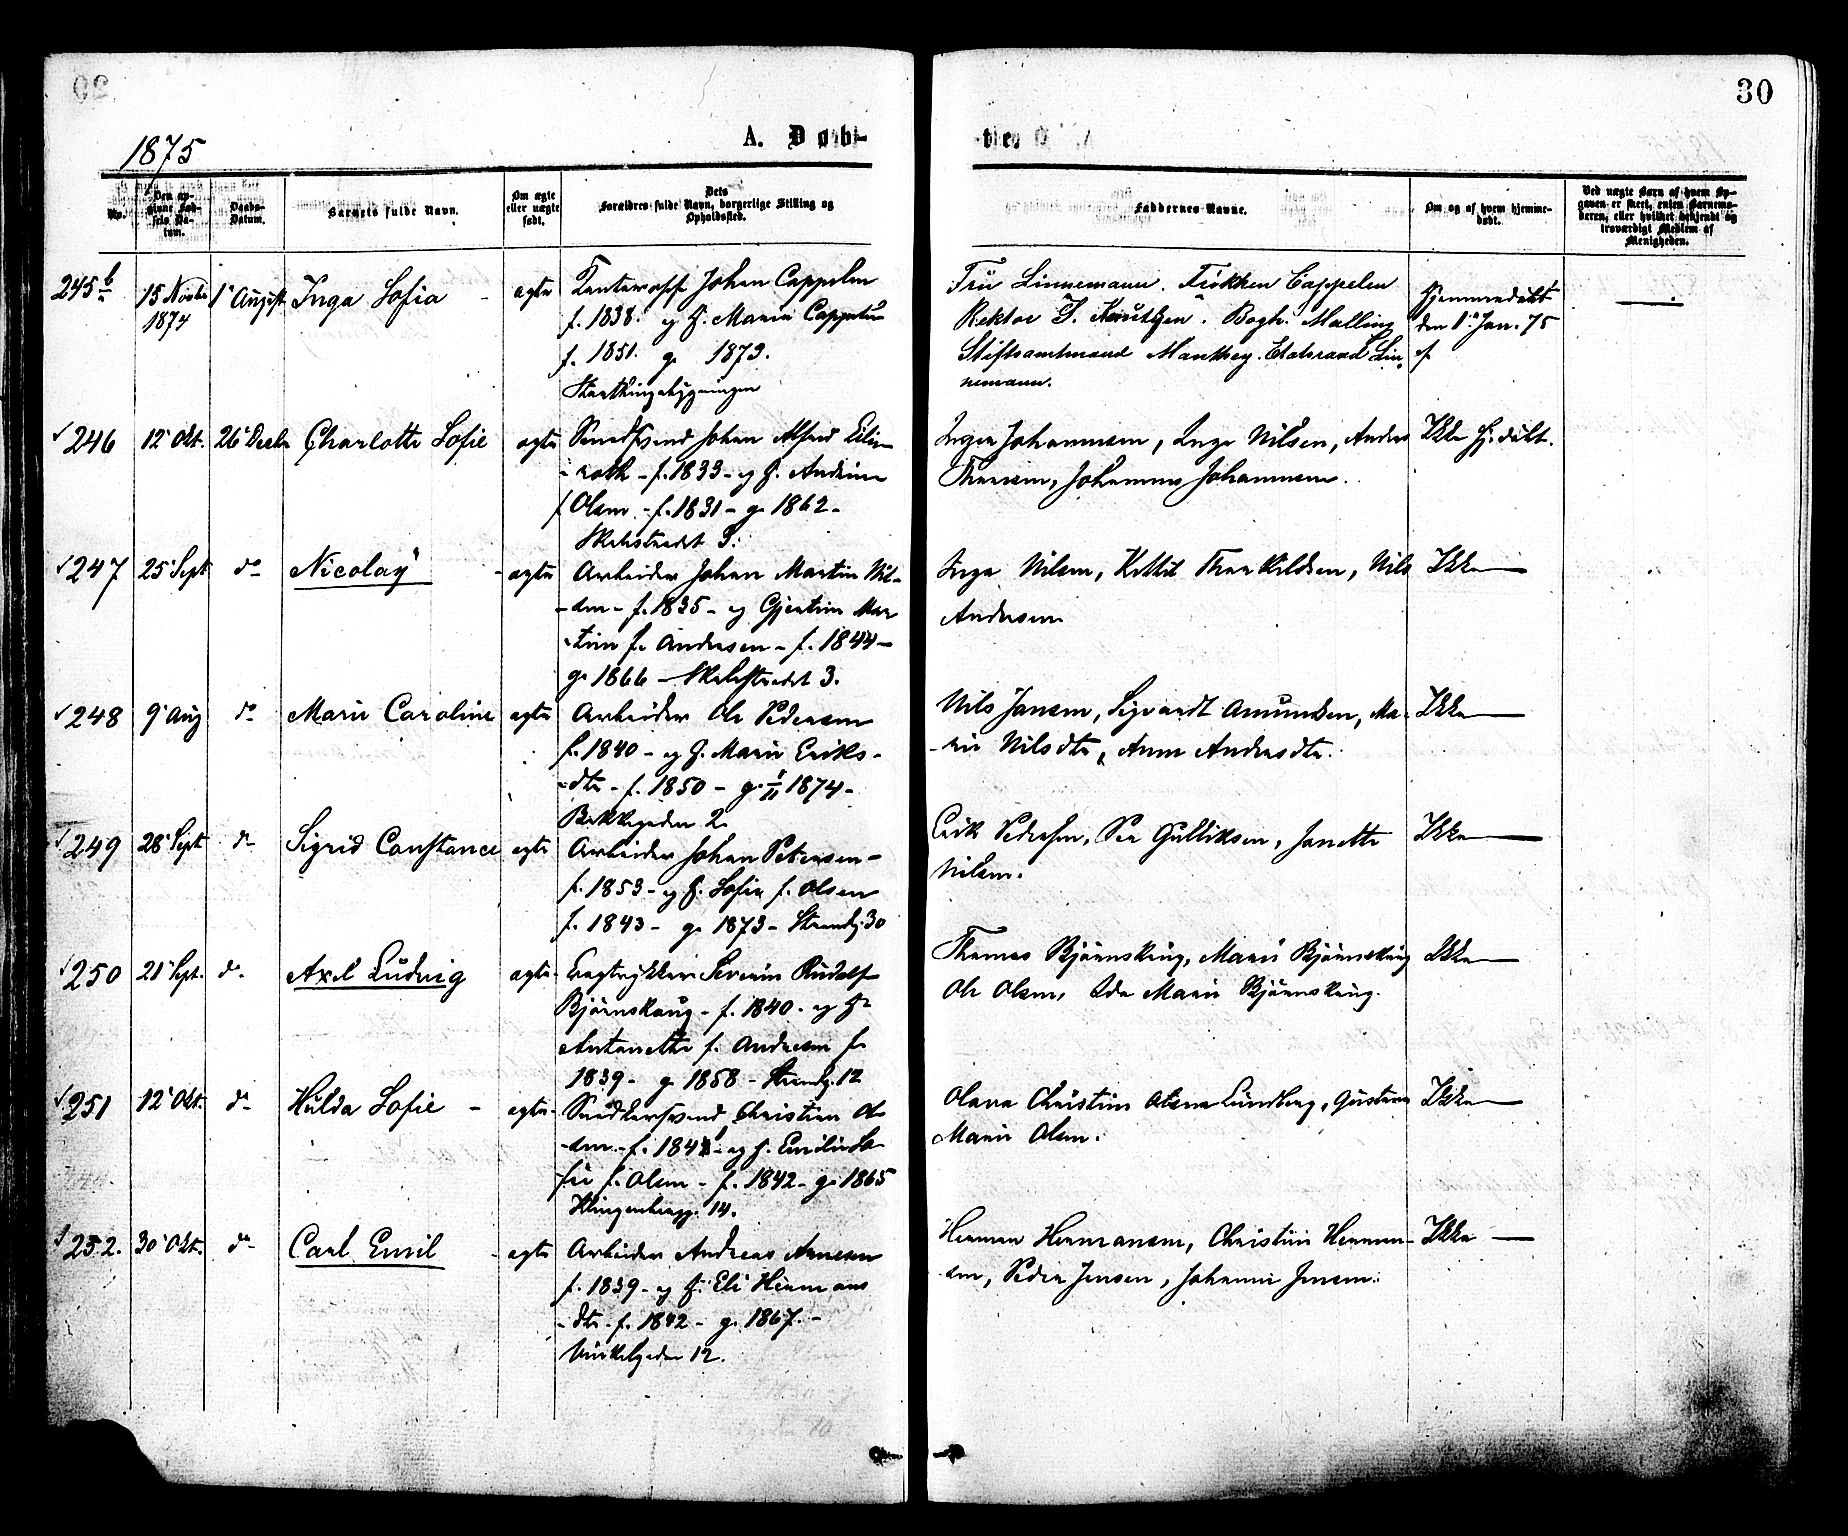 30
1875
A. Døb-
-te
No.
Den an-
givne Fød-
sels Da-
tum.
Daabs-
Datum.
Barnets fulde Navn.
Om ægte
eller uægte
født.
Dets
Forældres fulde Navn, borgerlige Stilling og
Opholdssted.
Faddernes Navne.
Om og af hvem hjemme-
døbt.
Ved uægte Barn af hvem Op-
gaven er skeet, enten Barnemo-
deren, eller hvilket bekjendt og
troværdigt Medlem af
Menigheden.
245b
15 Novbr
1874
1 August
Inga Sofia
ægte
Johan Cappelen
f. 1838. og H. Marie Cappelen
f. 1851. g. 1873.
Storthingsbygningen
Fru Linnemann. Frøkken Cappelen
Rektor J. Bogh. Malling
Stiftsamtmand Manthey. Etatsraad Lin-
nemann.
Hjemmedøbt
den 1 Jan. 75
af
246
12 Okt.
26 Decbr
Charlotte Sofie
ægte
Smedsvend Johan Alfred
- f. 1833 - og H. Andrine
f Olsen - f. 1831 - g. 1862 -
3.
Inger Johannesen, Inge Nilsen, Anders
Johannes Johannesen.
Ikke hj. døbt.
247
25 Sept
do
Nicolay
ægte
Arbeider Johan Martin Nil-
-sen - f. 1835 - og Gjertine Mar
-tine f. Andersen - f. 1844 -
g. 1866 - 3.
Inge Nilsen, Kittil Thorkildsen, Nils
Andersen
Ikke
248
9 Aug
do
Marie Caroline
ægte
Arbeider Ole Pedersen
f. 1840 - og H. Marie Eriks-
-dtr - f. 1850 - g. 1/11 1874 -
Bakkegaden 2.
Nils Jansen, Sigvardt Amundsen, Ma-
-rie Nilsdtr, Anne Andersdtr.
Ikke
249
28 Sept
do
Sigrid Constance
ægte
Arbeider Johan Petersen -
f. 1853 - og H. Sofie f. Olsen
f. 1843 - g. 1873 - Strandg. 30
Erik Pedersen, Per Gulliksen, Janette
Nilsen.
Ikke
250
21 Sept.
do
Axel Ludvig
ægte
Severin Rudolf
Bjørnskaug - f. 1840 - og H.
Antonette f. Andresen f.
1839 - g. 1858 - Strandg. 12
Thomas Bjørnskaug, Marie Bjørnskaug
Ole Olsen, Ida Marie Bjørnskaug.
Ikke
251
12 Okt.
do
Hulda Sofie
ægte
Snedkersvend Christian Ol-
-sen - f. 1841 - og H. Emilie So-
fie f. Olsen - f. 1842 - g. 1865
Klingenbergg. 14.
Olava Christine Olsen Lundberg, Gustava
Marie Olsen.
Ikke
252.
30 Okt.
do
Carl Emil
ægte
Arbeider Andreas Arnesen
f. 1839 - og H. Eli Hermans
-dtr. f. 1842 - g. 1867. -
Vinkelgaden 12.
Herman Hermansen, Christine Herman-
-sen, Peder Jensen, Johanne Jensen.
Ikke